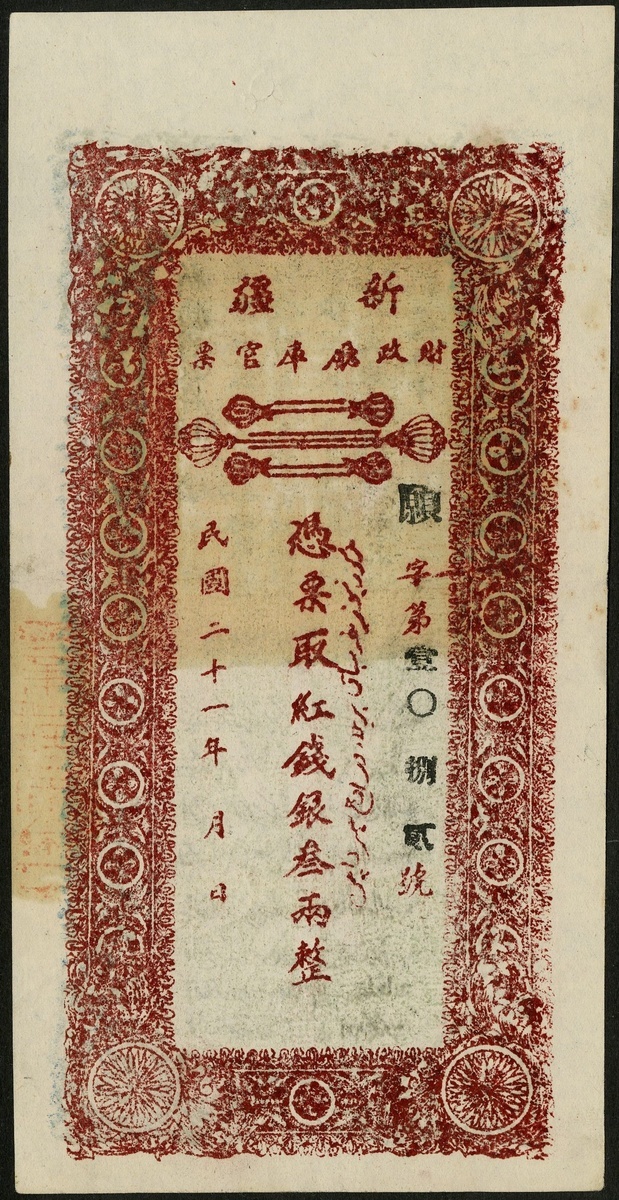 新疆
財政廳庫官票
願字第壹〇捌貳號
憑票取紅錢銀叁兩整
民國二十一年 月 日